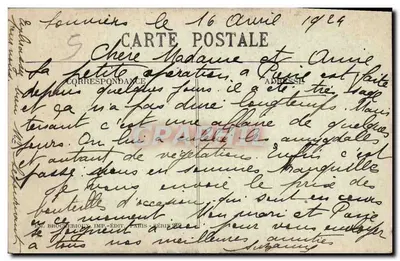 Louviers le 16 Avril 1924
CARTE POSTALE
5
Chère Madame et Amie
CORRESPONDANCE
ADRESSE
La petite opération à Pierre est faite
depuis quelques jours il a été très sage
et ça n'a pas duré longtemps. Main
tenant c'est une affaire de quelques
jours. On lui a enlevé les amygdales
et autant de végétations enfin c'est
passé nous en sommes tranquilles
Je vous envoie le prix des
bouteilles d'occasion, qui sont en cours
en ce moment. Mon mari et
se joignent à moi pour vous envoyer
à tous nos meilleures amitiés
Suzanne
IMP.-ÉDIT. PARIS